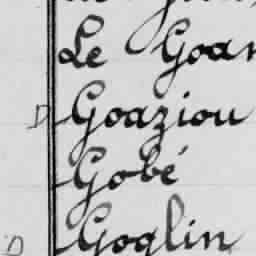 Le Goar
D Goaziou
Gobé
D Goglin